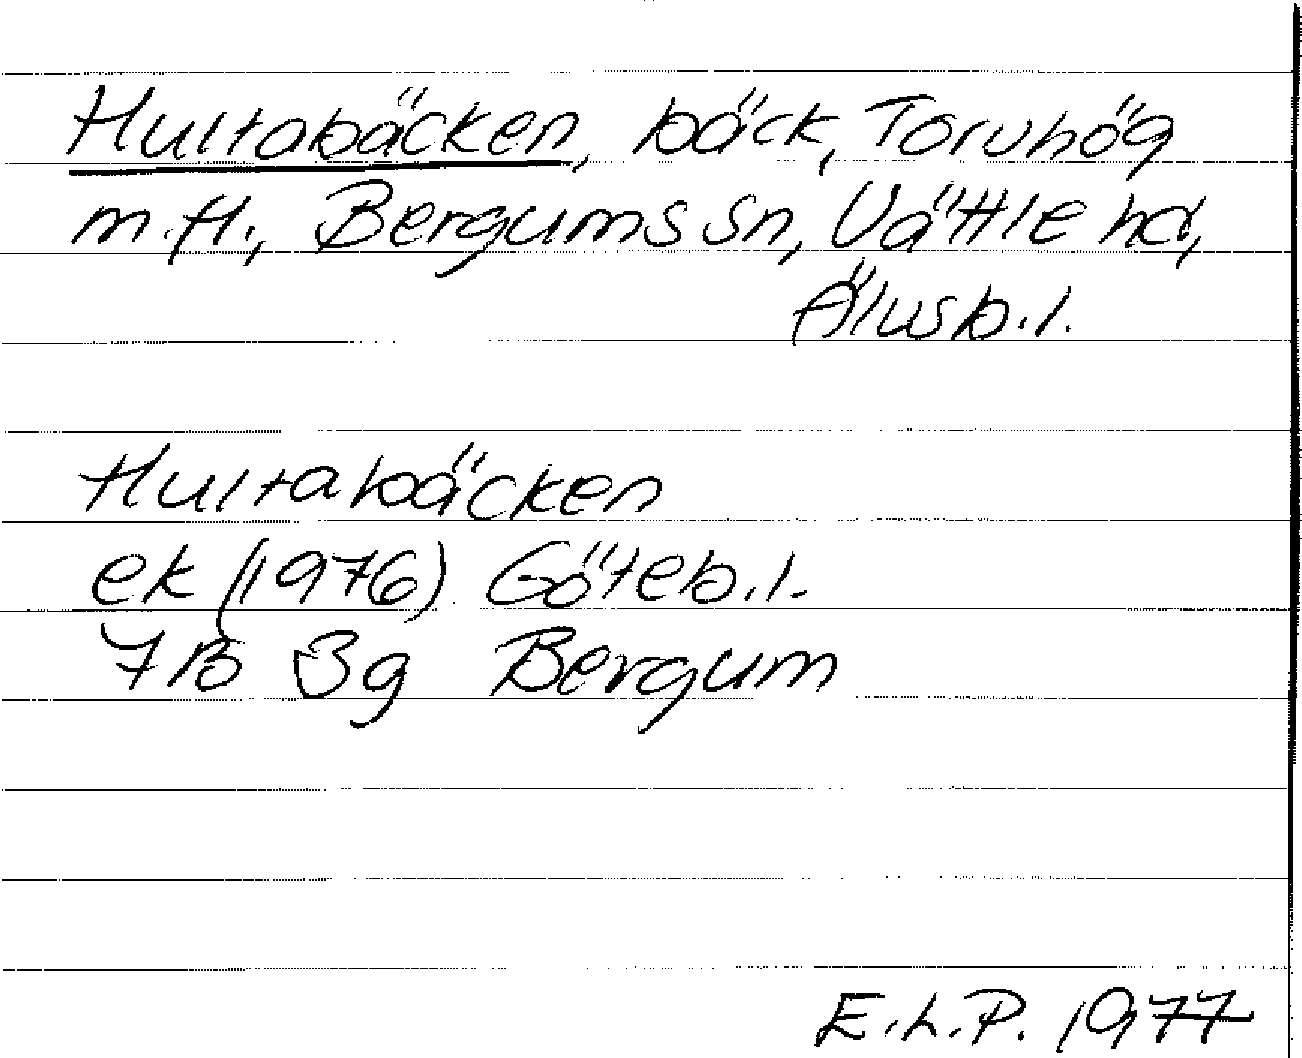 Hultabäcken, bäck, Torvhög
m.fl., Bergums sn, Vättle hd,
Älvsb.l.
Hultabäcken
ek (1976) Göteb.l.
7B 3g Bergum
E.L.P. 1977